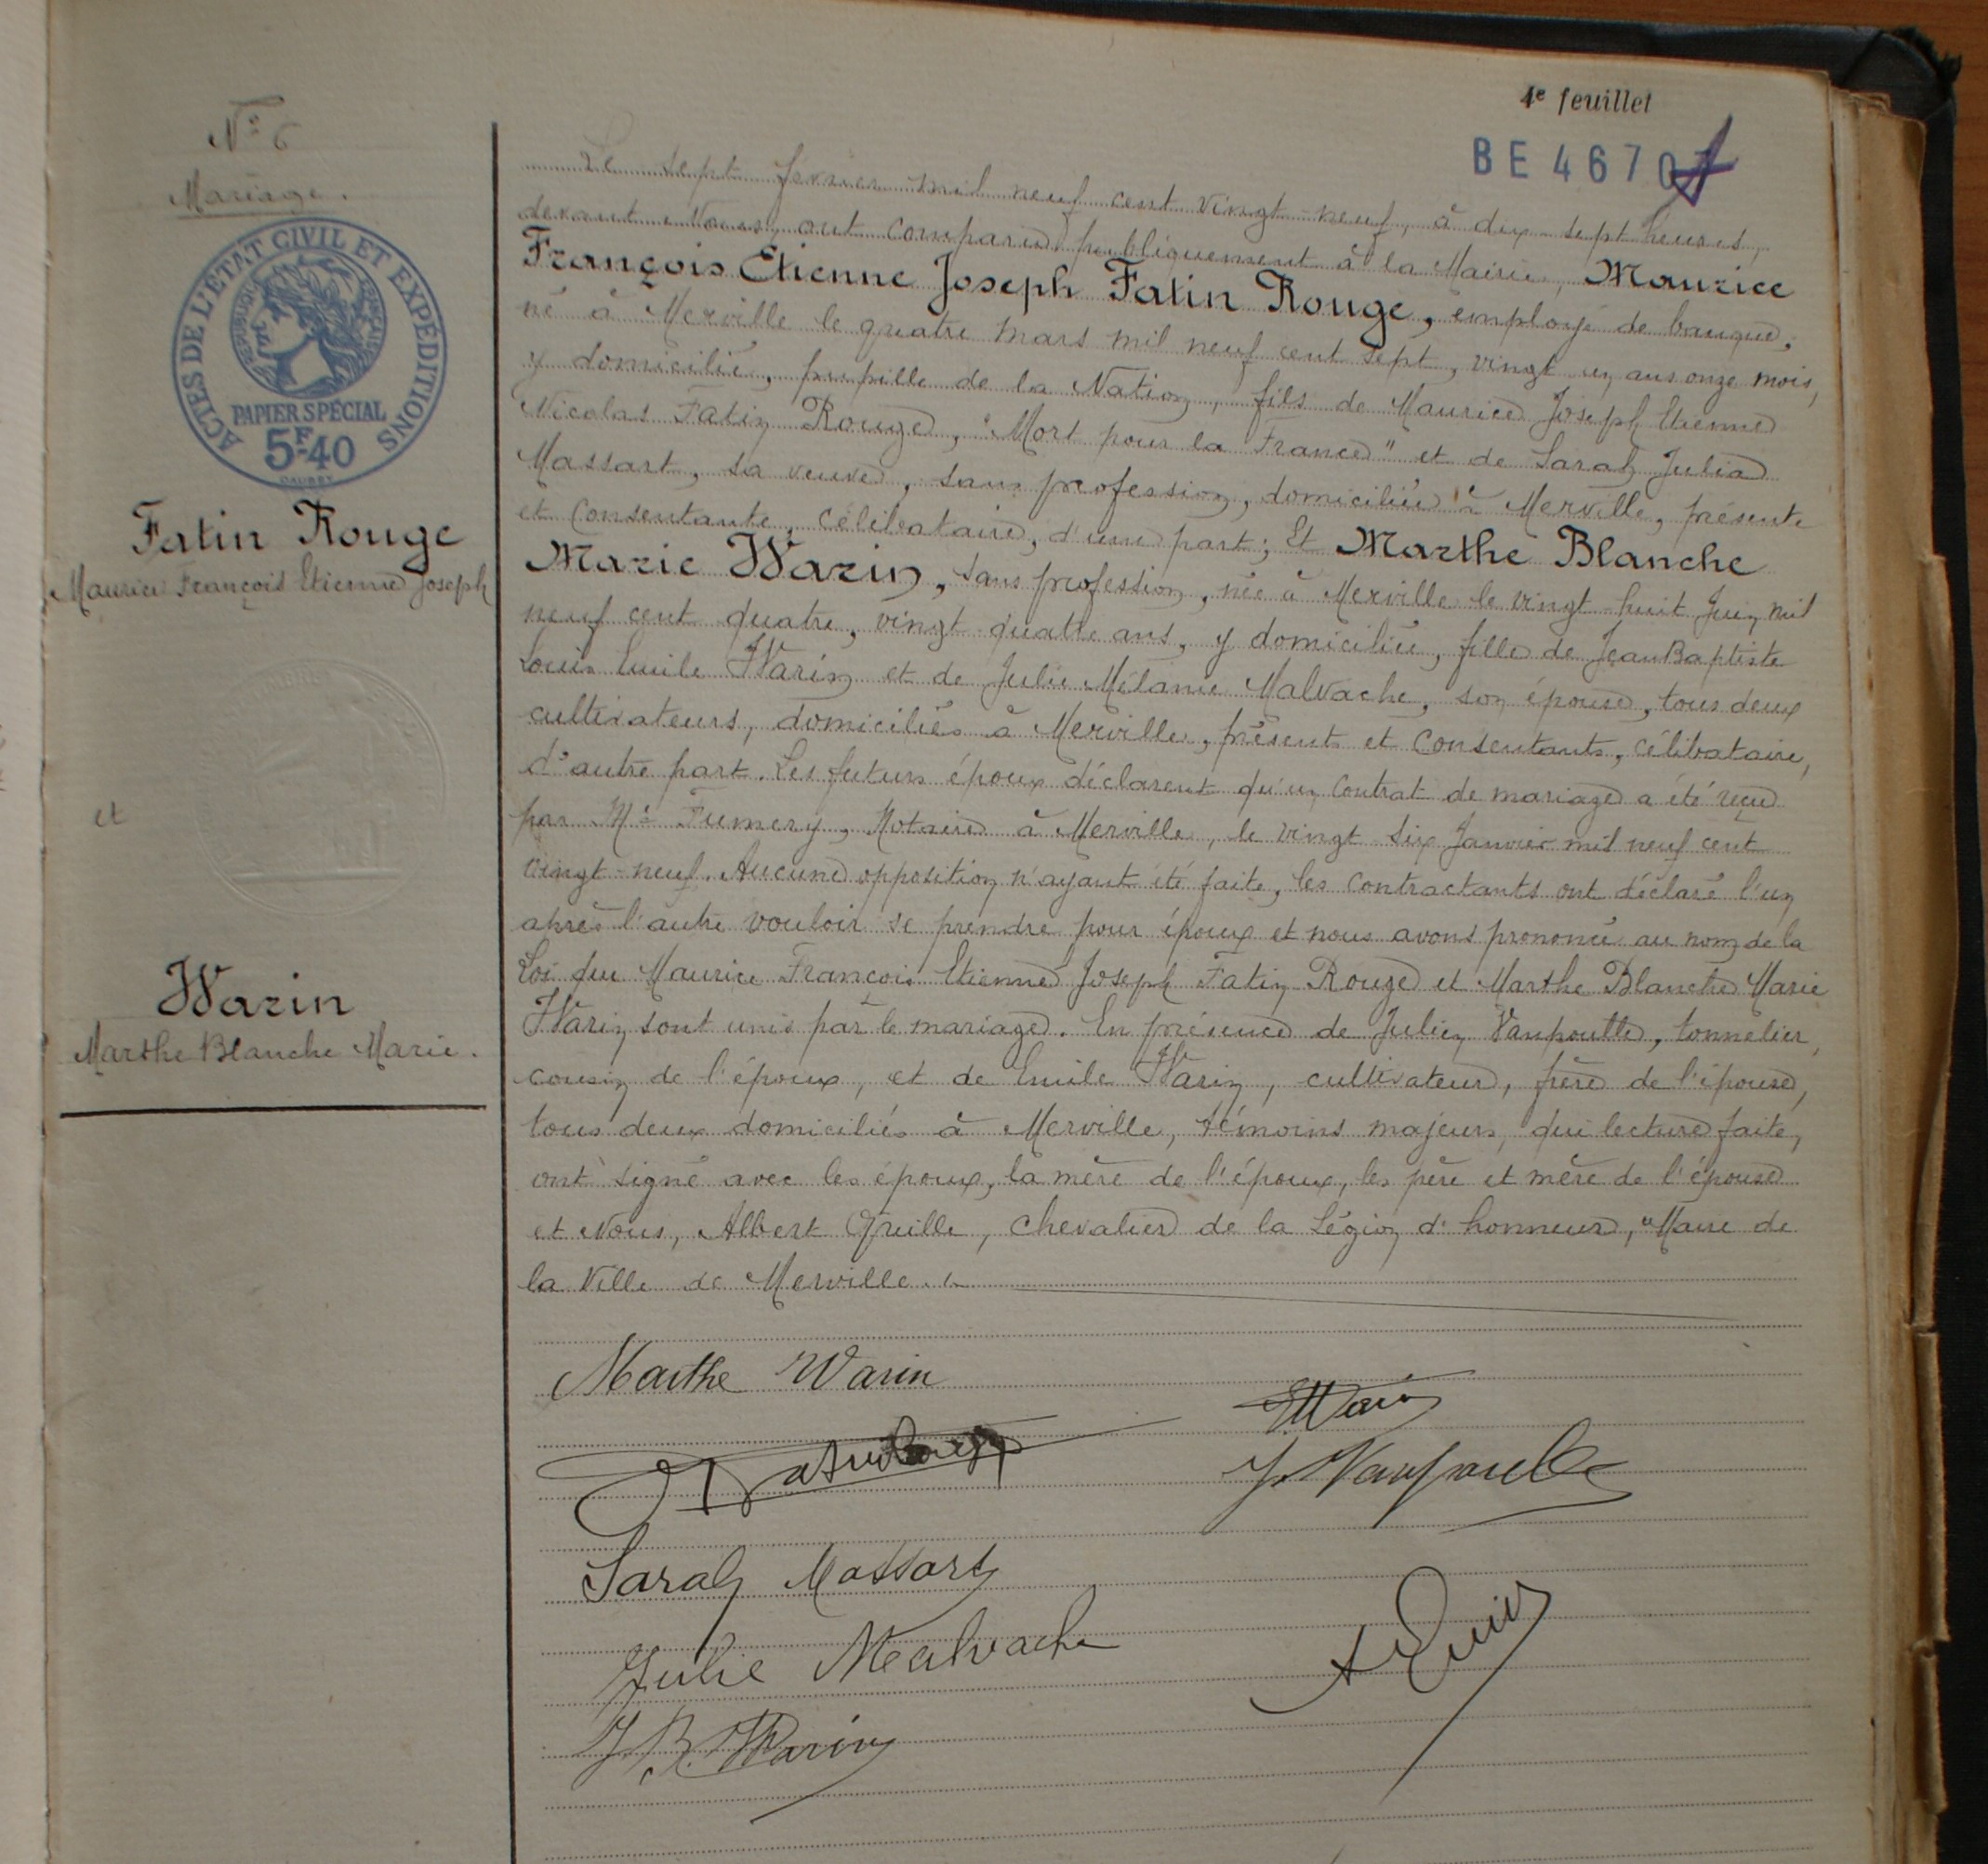 4e feuillet
BE 4670
N° 6
Mariage.
ACTES DE L'ETAT CIVIL ET EXPÉDITIONS
REPUBLIQUE FRANÇAISE
PAPIER SPÉCIAL
5F40
Fatin Rouge
Maurice François Etienne Joseph
et
Warin
Marthe Blanche Marie.
Le sept février mil neuf cent vingt-neuf, à dix-sept heures,
devant Nous, ont comparu publiquement à la Mairie, Maurice
François Etienne Joseph Fatin Rouge, employé de banque,
né à Merville le quatre mars mil neuf cent sept, vingt un ans onze mois,
y domicilié, pupille de la Nation, fils de Maurice Joseph Etienne
Nicolas Fatin Rouge, "Mort pour la France" et de Sarah Julia
Massart, sa veuve, sans profession, domiciliée à Merville, présente
et consentante, célibataire, d'une part; Et Marthe Blanche
Marie Warin, sans profession, née à Merville le vingt-huit Juin mil
neuf cent quatre, vingt quatre ans, y domiciliée, fille de Jean Baptiste
Louis Emile Warin et de Julie Mélanie Malvache, son épouse, tous deux
cultivateurs, domiciliés à Merville, présents et consentants, célibataire,
d'autre part. Les futurs époux déclarent qu'un contrat de mariage a été reçu
par Me Fumery, Notaire à Merville, le vingt six Janvier mil neuf cent
vingt-neuf. Aucune opposition n'ayant été faite, les contractants ont déclaré l'un
après l'autre vouloir se prendre pour époux et nous avons prononcé au nom de la
Loi que Maurice François Etienne Joseph Fatin Rouge et Marthe Blanche Marie
Warin sont unis par le mariage. En présence de Julien Vanpoutte, tonnelier,
cousin de l'époux, et de Emile Warin, cultivateur, frère de l'épouse,
tous deux domiciliés à Merville, témoins majeurs, qui lecture faite,
ont signé avec les époux, la mère de l'époux, les père et mère de l'épouse
et Nous, Albert Queille, chevalier de la Légion d'honneur, Maire de
la Ville de Merville.
Marthe Warin
E Warin
Sarah Massart
Julie Malvache
J. B. Warin